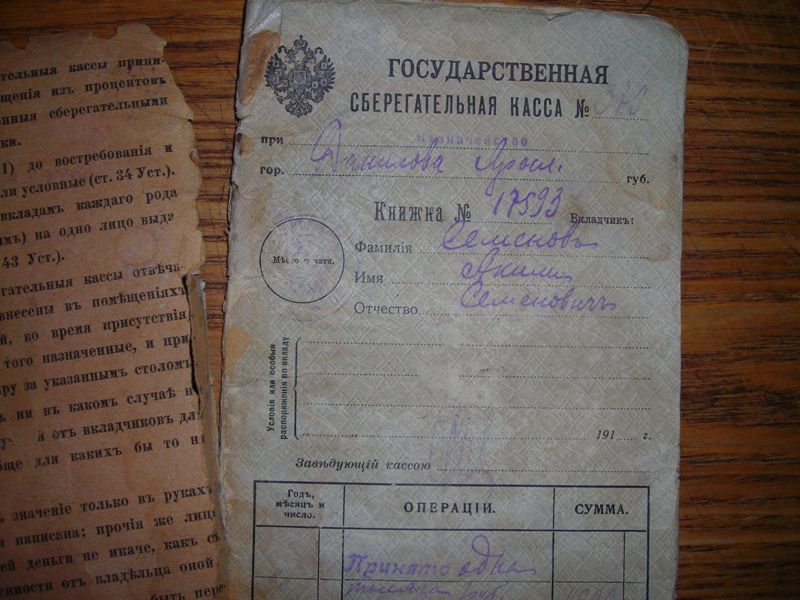 тельныя кассы прини-
щенія изъ процентовъ
нныя сберегательными
ки.
1) до востребованія и
ли условные (ст. 34 Уст.).
вкладамъ каждаго рода
мъ) на одно лицо выда
43 Уст.).
гательныя кассы отвѣча
внесены въ помѣщеніяхъ
й, во время присутствія
того назначенные, и при
ру за указаннымъ столомъ
ь ни въ какомъ случаѣ н
й отъ вкладчиковъ дл
бще для какихъ бы то н
ь значеніе только въ рукахъ
написана; прочія же лиц
ей деньги не иначе, какъ съ
енности отъ владѣльца оной
быть пере
ГОСУДАРСТВЕННАЯ
СБЕРЕГАТЕЛЬНАЯ КАССА №
при Казначейство
гор. Данилова Яросл. губ.
Книжка № 17593 Вкладчикъ:
Мѣсто печати.
Фамилія Семеновъ
Имя Акимъ
Отчество Семеновичъ
Условія или особыя
распоряженія по вкладу
191 г.
Завѣдующій кассою
Годъ, мѣсяцъ и число. ОПЕРАЦІИ. СУММА.
Принято одна
тысяча руб